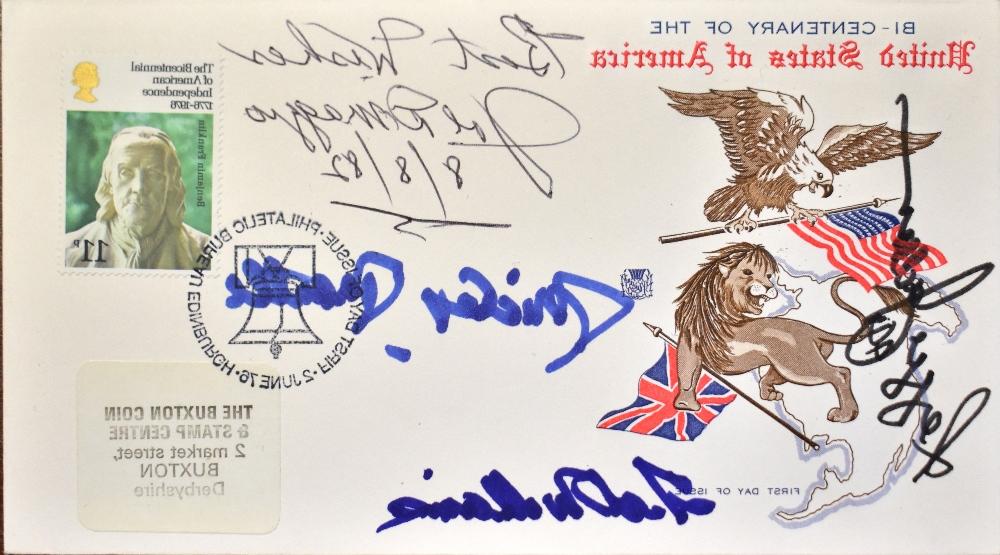 BI-CENTENARY OF THE
United States of America
Best Wishes
Joe DiMaggio
8/8/82
The Bicentennial
of American
Independence
1776-1976
Benjamin Franklin
11P
FIRST DAY OF ISSUE · PHILATELIC BUREAU EDINBURGH · 2 JUNE 76
Mickey Mantle
THE BUXTON COIN
& STAMP CENTRE
2 market street,
BUXTON
Derbyshire
Ted Williams
FIRST DAY OF ISSUE